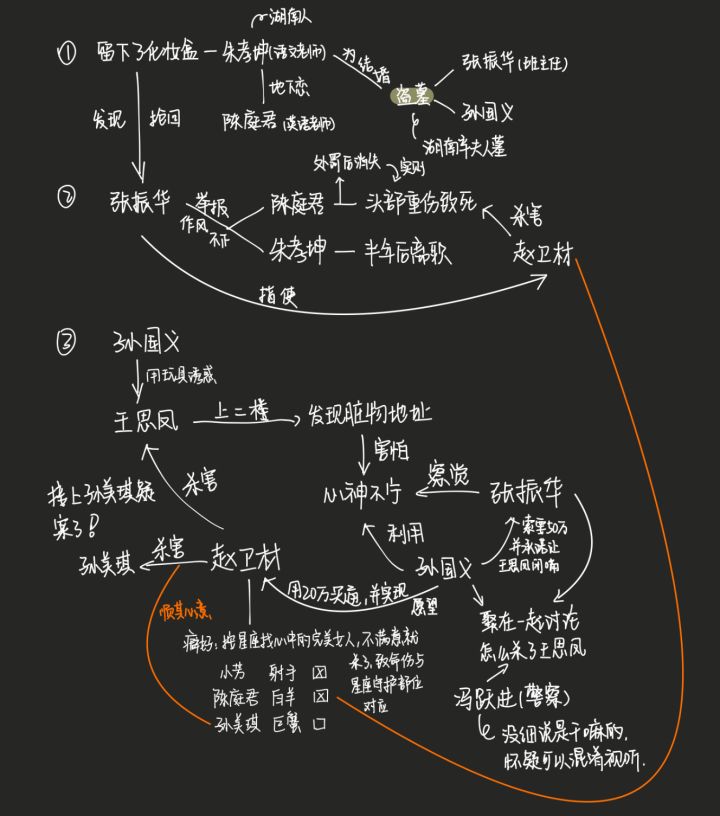 湖南人
① 留下了化妆盒 — 朱孝坤(语文老师) 为结婚 盗墓 张振华(班主任)
孙国义
湖南辛夫人墓
地下恋
陈庭君(英语老师)
发现 抢回
② 张振华 举报 作风不正 陈庭君 — 头部重伤致死
处罚后消失 实则
朱孝坤 — 半年后离职
杀害
赵卫材
指使
③ 孙国义
用玩具诱惑
王思凤 上二楼 发现脏物地址
害怕
心神不宁 察觉 张振华
杀害
接上孙美琪疑
案了!
利用
孙国义
索要50万
并承诺让
王思凤闭嘴
孙美琪 杀害 赵卫材
用20万买通,并实现
愿望
聚在一起讨论
怎么杀了王思凤
顺其心意
癖好:按星座找心中的完美女人,不满意就
杀了,致命伤与
星座守护部位
对应
小芳 射手 ☒
陈庭君 白羊 ☒
孙美琪 巨蟹 □
冯跃进(警察)
没细说是干嘛的,
怀疑可以混淆视听.